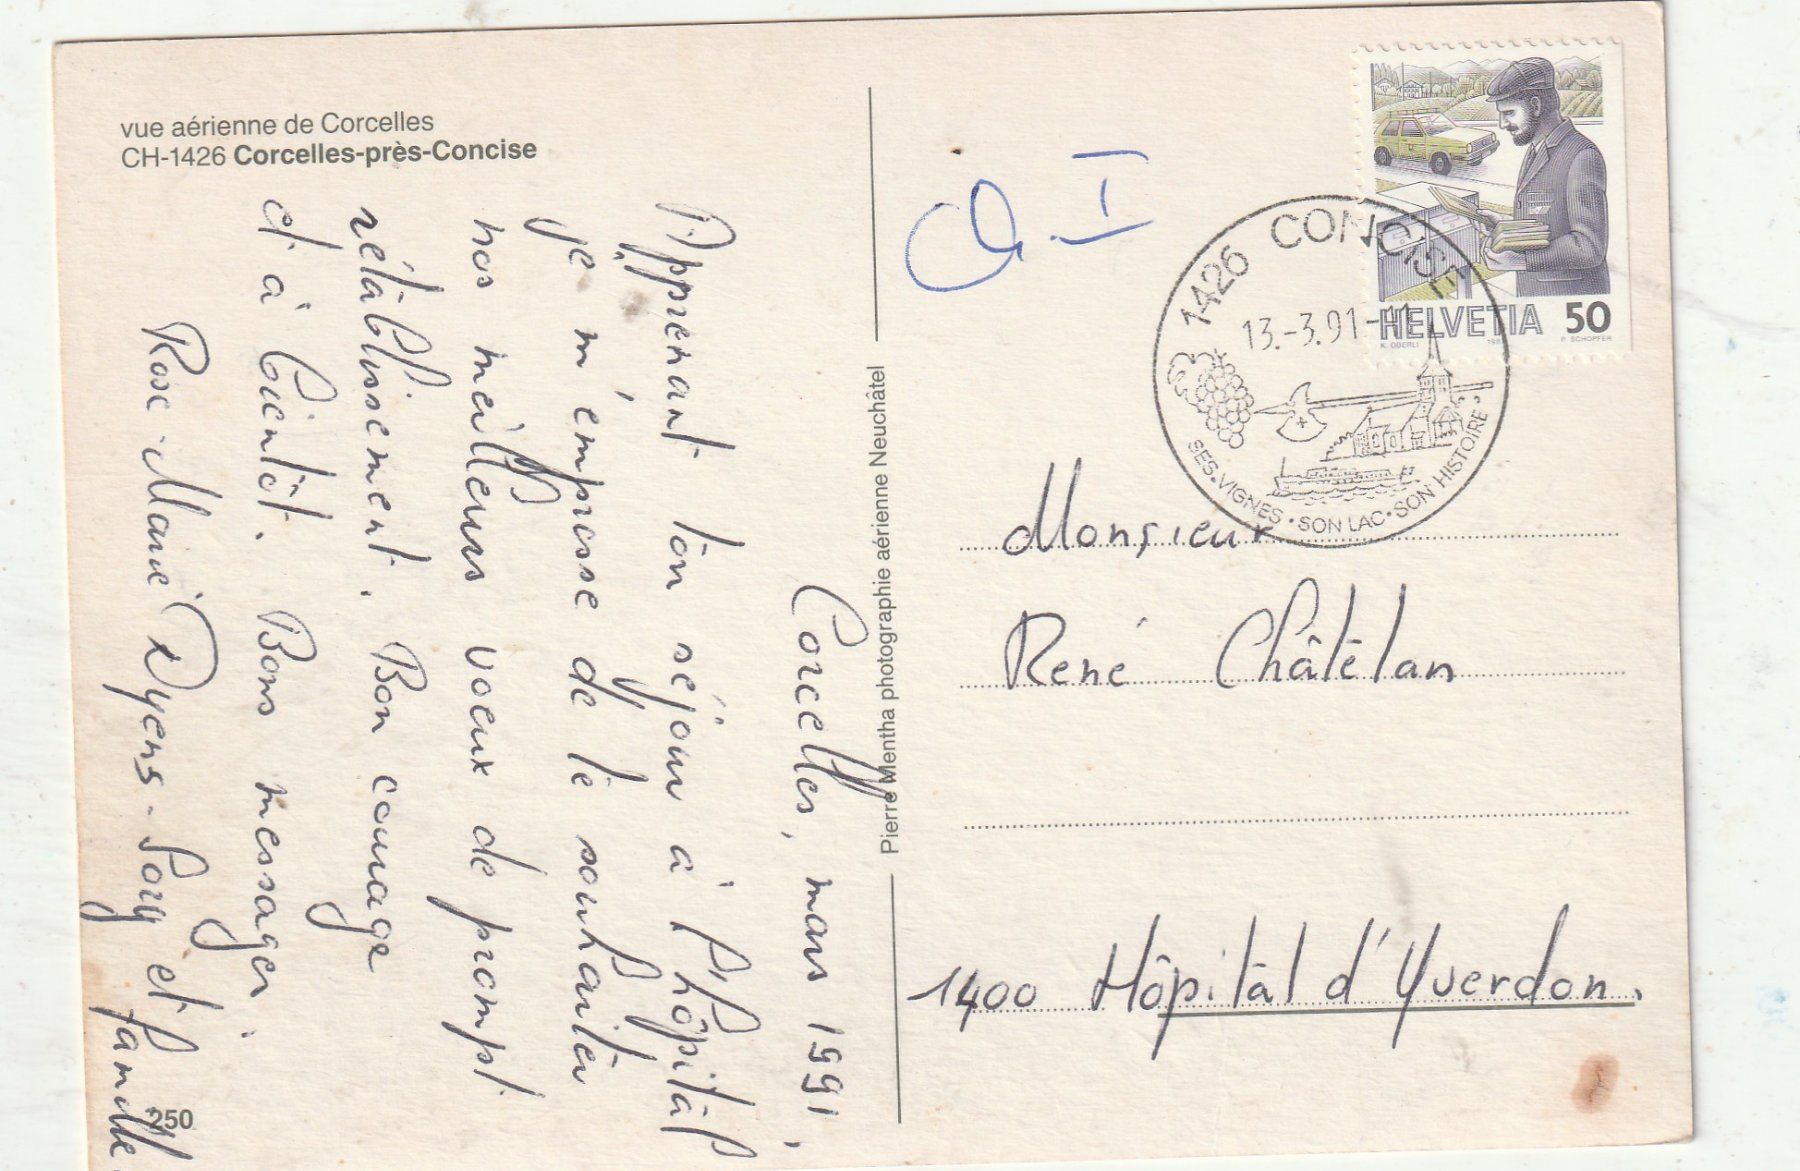 vue aérienne de Corcelles
CH-1426 Corcelles-près-Concise
Corcelles, mars 1991,
Apprenant ton séjour à l'hôpital
je m'empresse de te souhaiter
nos meilleurs voeux de prompt
rétablissement. Bon courage
et à bientôt. Bons messages.
Rose-Marie et famille.
250
Pierre Mentha photographie aérienne Neuchâtel
Ch. I
1426 CONCISE
13.-3.91-11
SES VIGNES • SON LAC • SON HISTOIRE •
HELVETIA 50
K. OBERLI
P. SCHOPFER
Monsieur
René Châtelan
1400 Hôpital d'Yverdon.